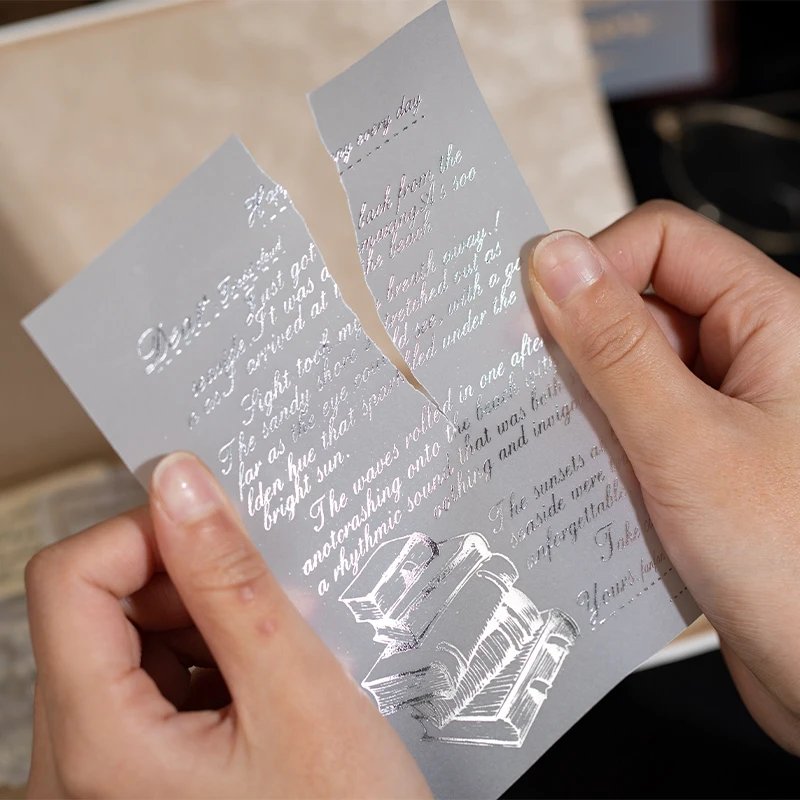 Hap ny every day
Dear
Just got back from the
seaside. It was a amazing. As soo
arrived at the beach
Sight took my breath away!
The sandy shore stretched out as
far as the eye could see, with a go
lden hue that sparkled under the
bright sun.
The waves rolled in one after
anotcrashing onto the beach with
a rhythmic sound that was both
soothing and invig
The sunsets a
seaside were
unforgettable
Take
Yours